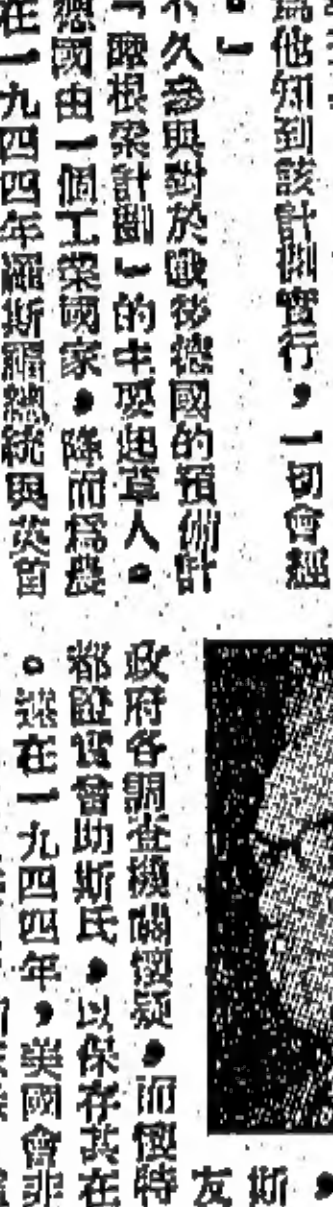 為他知到該計劃實行，一切會經
。」
不久參與對於戰後德國的預備計
「摩根索計劃」的主要起草人。
德國由一個工業國家，降而爲農
在一九四四年羅斯福總統與英首
，
斯
友
政府各調查機關懷疑，而懷特
都證實會助斯氏，以保存其在
。遠在一九四四年，美國會非